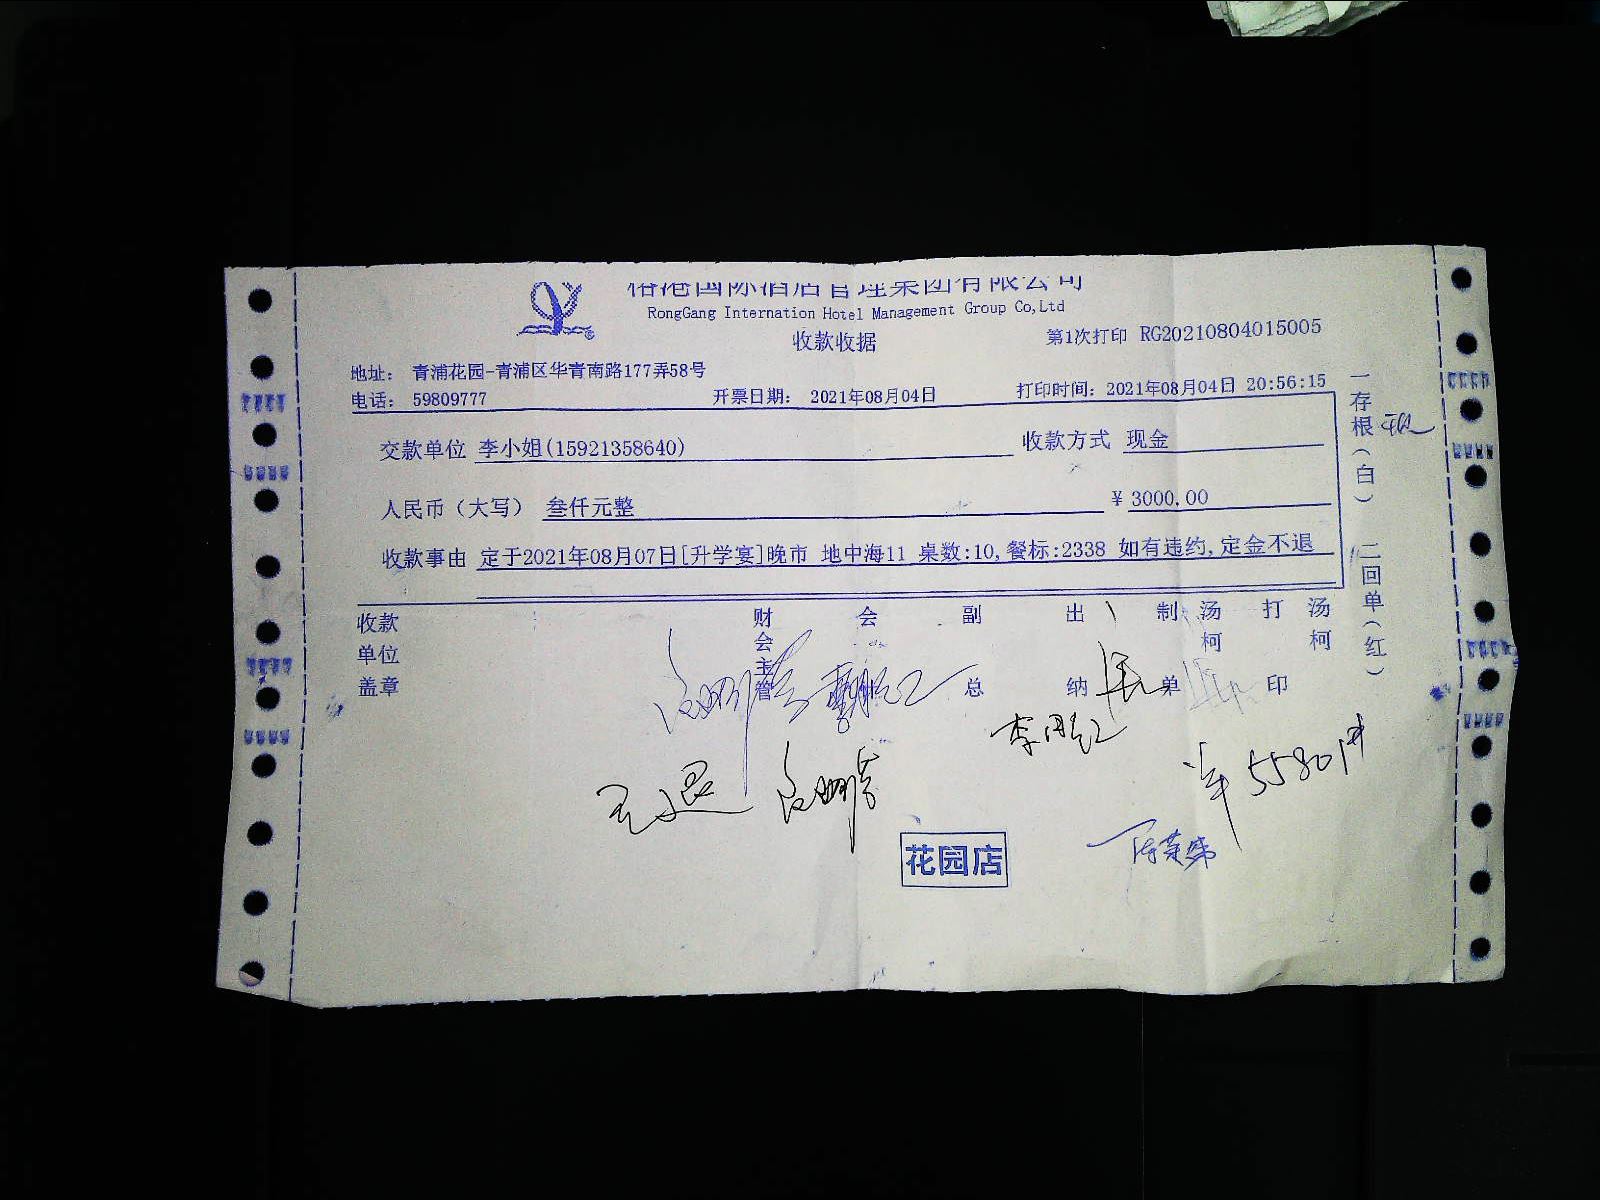 港国际酒店管理集团有限公司
RongGang Internation Hotel Management Group Co,Ltd
收款收据
第1次打印 RG20210804015005
地址： 青浦花园-青浦区华青南路177弄58号
电话： 59809777 开票日期： 2021年08月04日 打印时间：2021年08月04日 20:56:15
交款单位 李小姐(15921358640) 收款方式 现金
人民币（大写） 叁仟元整 ￥3000.00
收款事由 定于2021年08月07日[升学宴]晚市 地中海11 桌数:10,餐标:2338 如有违约,定金不退
收款单位盖章 财会主管 会 副总 出纳 制单 汤柯 打印 汤柯
一存根（白） 二回单（红）
5580
花园店